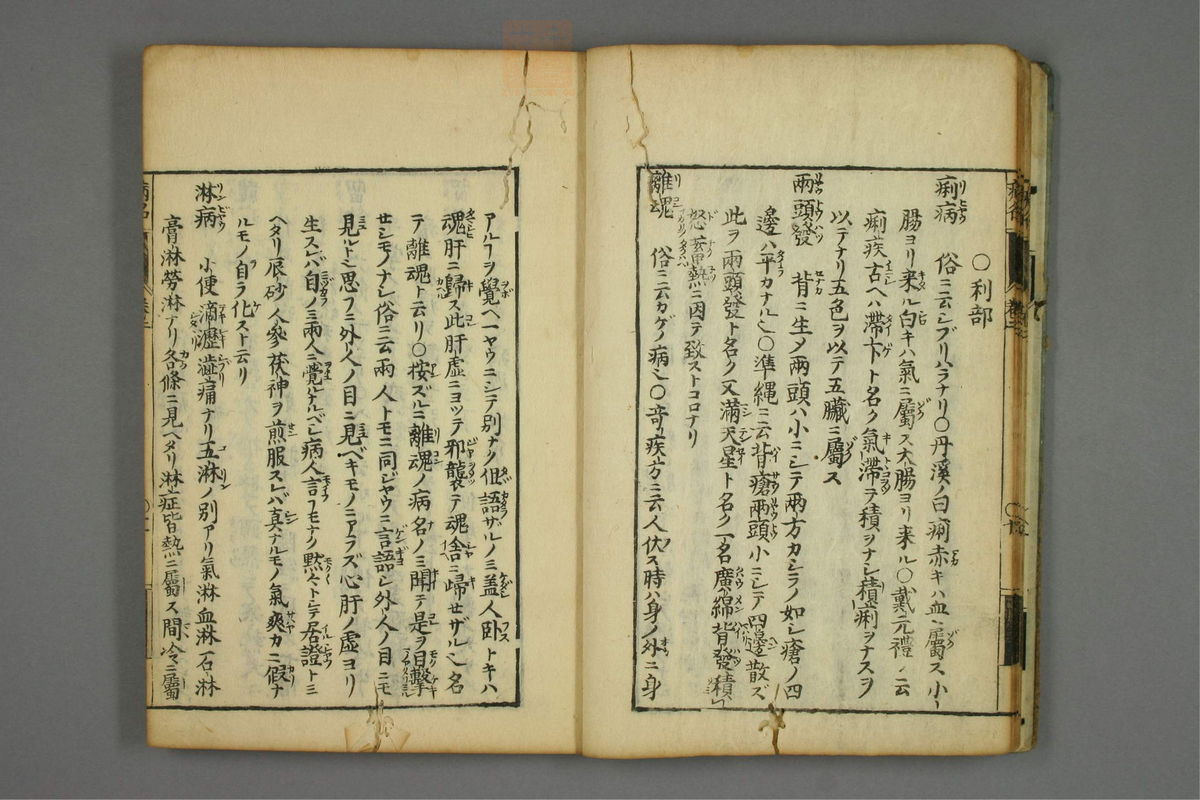 〇利部
痢病 俗ニ云シブリハラナリ〇丹溪ノ曰痢赤キハ血ニ屬ス小
腸ヨリ来ル白キハ氣ニ屬ス大腸ヨリ来ル〇戴元禮ノ云
痢疾古ヘハ滯下ト名ク氣滯テ積ヲナシ積痢ヲナスヲ
以テナリ五色ヲ以テ五臟ニ屬ス
兩頭發 背ニ生メ兩頭ハ小ニシテ兩方カシラノ如シ瘡ノ四
邊ハ平カナル也〇準縄ニ云背瘡兩頭小ニシテ四邊散ズ
此ヲ兩頭發ト名ク又滿天星ト名ク一名廣綿背發積
怒蓄熱ニ因テ致ストコロナリ
離魂 俗ニ云カゲノ病也〇奇疾方ニ云人伏ス時ハ身ノ外ニ身
アルヿヲ覺ヘ一ヤウニシテ別ナク但語ザルノミ盖人卧トキハ
魂肝ニ歸ス此肝虚ニヨッテ邪襲テ魂舎ニ歸セザル也名
テ離魂ト云リ〇按ズルニ離魂ノ病名ノミ聞テ是ヲ目擊
セシモノナシ俗ニ云兩人トモニ同ジヤウニ言語シ外人ノ目ニモ
見ルト也思フニ外人ノ目ニ見ベキモノニアラズ心肝ノ虚ヨリ
生スレバ自ノミ兩人ニ覺ルナルベシ病人言フモナク黙々トシテ居證トミ
ヘタリ辰砂人參茯神ヲ煎服スレバ真ナルモノ氣爽カニ假ナ
ルモノ自ラ化スト云リ
淋病 小便滴瀝澁痛ナリ五淋ノ別アリ氣淋血淋石淋
膏淋勞淋ナリ各條ニ見ヘタリ淋症皆熱ニ屬ス間冷ニ屬